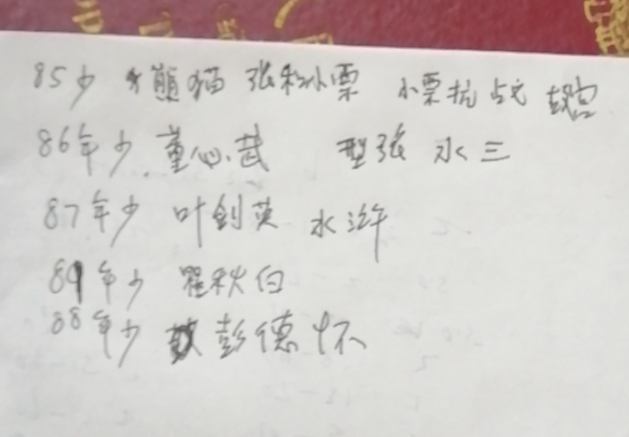 85少 熊猫 张 小票 小票抗 故宫
86年少 董必武 型张 水三
87年少 叶剑英 水浒
89年少 瞿秋白
88年少 彭德怀